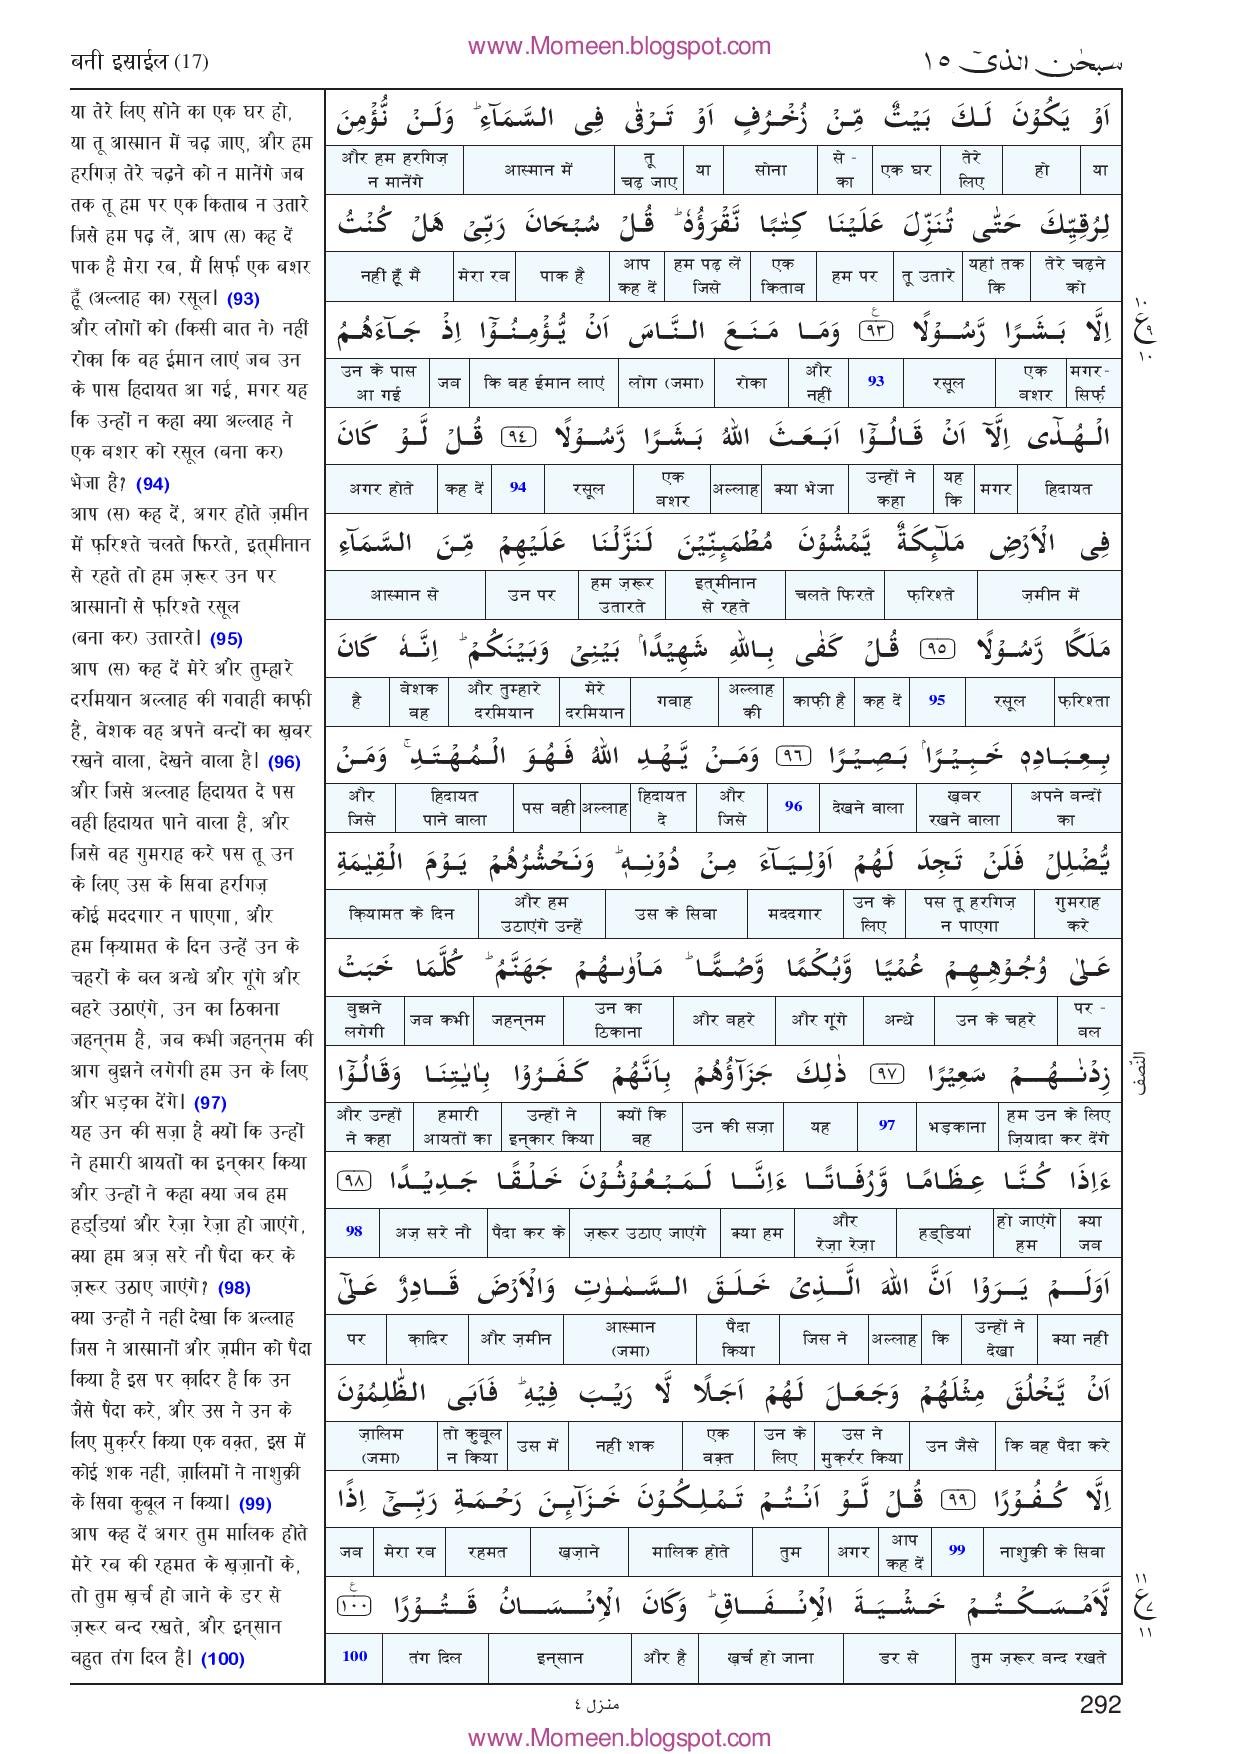 www.Momeen.blogspot.com
बनी इस्राईल (17)
سبحٰن الذیٓ ١٥
या तेरे लिए सोने का एक घर हो,
या तू आस्मान में चढ़ जाए, और हम
हरगिज़ तेरे चढ़ने को न मानेंगे जब
तक तू हम पर एक किताब न उतारे
जिसे हम पढ़ लें, आप (स) कह दें
पाक है मेरा रब, मैं सिर्फ़ एक बशर
हूँ (अल्लाह का) रसूल। (93)
और लोगों को (किसी बात ने) नहीं
रोका कि वह ईमान लाएं जब उन
के पास हिदायत आ गई, मगर यह
कि उन्हों न कहा क्या अल्लाह ने
एक बशर को रसूल (बना कर)
भेजा है? (94)
आप (स) कह दें, अगर होते ज़मीन
में फ़रिश्ते चलते फिरते, इत्मीनान
से रहते तो हम ज़रूर उन पर
आस्मानों से फ़रिश्ते रसूल
(बना कर) उतारते। (95)
आप (स) कह दें मेरे और तुम्हारे
दरमियान अल्लाह की गवाही काफ़ी
है, बेशक वह अपने बन्दों का ख़बर
रखने वाला, देखने वाला है। (96)
और जिसे अल्लाह हिदायत दे पस
वही हिदायत पाने वाला है, और
जिसे वह गुमराह करे पस तू उन
के लिए उस के सिवा हरगिज़
कोई मददगार न पाएगा, और
हम क़ियामत के दिन उन्हें उन के
चहरों के बल अन्धे और गूंगे और
बहरे उठाएंगे, उन का ठिकाना
जहन्नम है, जब कभी जहन्नम की
आग बुझने लगेगी हम उन के लिए
और भड़का देंगे। (97)
यह उन की सज़ा है क्यों कि उन्हों
ने हमारी आयतों का इन्कार किया
और उन्हों ने कहा क्या जब हम
हड्डियां और रेज़ा रेज़ा हो जाएंगे,
क्या हम अज़ सरे नौ पैदा कर के
ज़रूर उठाए जाएंगे? (98)
क्या उन्हों ने नहीं देखा कि अल्लाह
जिस ने आस्मानों और ज़मीन को पैदा
किया है इस पर क़ादिर है कि उन
जैसे पैदा करे, और उस ने उन के
लिए मुक़र्रर किया एक वक़्त, इस में
कोई शक नहीं, ज़ालिमों ने नाशुक्री
के सिवा क़ुबूल न किया। (99)
आप कह दें अगर तुम मालिक होते
मेरे रब की रहमत के ख़ज़ानों के,
तो तुम ख़र्च हो जाने के डर से
ज़रूर बन्द रखते, और इन्सान
बहुत तंग दिल है। (100)
اَوْ يَكُوْنَ لَكَ بَيْتٌ مِّنْ زُخْرُفٍ اَوْ تَرْقٰى فِى السَّمَآءِ ؕ وَلَنْ نُّؤْمِنَ
या हो तेरे लिए एक घर से - का सोना या तू चढ़ जाए आस्मान में और हम हरगिज़ न मानेंगे
لِرُقِيِّكَ حَتّٰى تُنَزِّلَ عَلَيْنَا كِتٰبًا نَّقْرَؤُهٗ ؕ قُلْ سُبْحَانَ رَبِّىْ هَلْ كُنْتُ
तेरे चढ़ने को यहां तक कि तू उतारे हम पर एक किताब हम पढ़ लें जिसे आप कह दें पाक है मेरा रब नहीं हूँ मैं
اِلَّا بَشَرًا رَّسُوْلًا ﴿٩٣﴾ وَمَا مَنَعَ النَّاسَ اَنْ يُّؤْمِنُوْٓا اِذْ جَآءَهُمُ
मगर-सिर्फ़ एक बशर रसूल 93 और नहीं रोका लोग (जमा) कि वह ईमान लाएं जब उन के पास आ गई
الْهُدٰٓى اِلَّآ اَنْ قَالُوْٓا اَبَعَثَ اللهُ بَشَرًا رَّسُوْلًا ﴿٩٤﴾ قُلْ لَّوْ كَانَ
हिदायत मगर यह कि उन्हों ने कहा क्या भेजा अल्लाह एक बशर रसूल 94 कह दें अगर होते
فِى الْاَرْضِ مَلٰٓٮِٕكَةٌ يَّمْشُوْنَ مُطْمَٮِٕنِّيْنَ لَنَزَّلْنَا عَلَيْهِمْ مِّنَ السَّمَآءِ
ज़मीन में फ़रिश्ते चलते फिरते इत्मीनान से रहते हम ज़रूर उतारते उन पर आस्मान से
مَلَكًا رَّسُوْلًا ﴿٩٥﴾ قُلْ كَفٰى بِاللهِ شَهِيْدًاۢ بَيْنِىْ وَبَيْنَكُمْ ؕ اِنَّهٗ كَانَ
फ़रिश्ता रसूल 95 कह दें काफ़ी है अल्लाह की गवाह मेरे दरमियान और तुम्हारे दरमियान बेशक वह है
بِعِبَادِهٖ خَبِيْرًاۢ بَصِيْرًا ﴿٩٦﴾ وَمَنْ يَّهْدِ اللهُ فَهُوَ الْمُهْتَدِ ۚ وَمَنْ
अपने बन्दों का ख़बर रखने वाला देखने वाला 96 और जिसे हिदायत दे अल्लाह पस वही हिदायत पाने वाला और जिसे
يُّضْلِلْ فَلَنْ تَجِدَ لَهُمْ اَوْلِيَآءَ مِنْ دُوْنِهٖ ؕ وَنَحْشُرُهُمْ يَوْمَ الْقِيٰمَةِ
गुमराह करे पस तू हरगिज़ न पाएगा उन के लिए मददगार उस के सिवा और हम उठाएंगे उन्हें क़ियामत के दिन
عَلٰى وُجُوْهِهِمْ عُمْيًا وَّبُكْمًا وَّصُمًّا ؕ مَاْوٰٮهُمْ جَهَنَّمُ ؕ كُلَّمَا خَبَتْ
पर - बल उन के चहरे अन्धे और गूंगे और बहरे उन का ठिकाना जहन्नम जब कभी बुझने लगेगी
زِدْنٰهُمْ سَعِيْرًا ﴿٩٧﴾ ذٰلِكَ جَزَآؤُهُمْ بِاَنَّهُمْ كَفَرُوْا بِاٰيٰتِنَا وَقَالُوْٓا
हम उन के लिए ज़ियादा कर देंगे भड़काना 97 यह उन की सज़ा क्यों कि वह उन्हों ने इन्कार किया हमारी आयतों का और उन्हों ने कहा
ءَاِذَا كُنَّا عِظَامًا وَّرُفَاتًا ءَاِنَّا لَمَبْعُوْثُوْنَ خَلْقًا جَدِيْدًا ﴿٩٨﴾
क्या जब हो जाएंगे हम हड्डियां और रेज़ा रेज़ा क्या हम ज़रूर उठाए जाएंगे पैदा कर के अज़ सरे नौ 98
اَوَلَمْ يَرَوْا اَنَّ اللهَ الَّذِىْ خَلَقَ السَّمٰوٰتِ وَالْاَرْضَ قَادِرٌ عَلٰٓى
क्या नहीं उन्हों ने देखा कि अल्लाह जिस ने पैदा किया आस्मान (जमा) और ज़मीन क़ादिर पर
اَنْ يَّخْلُقَ مِثْلَهُمْ وَجَعَلَ لَهُمْ اَجَلًا لَّا رَيْبَ فِيْهِ ؕ فَاَبَى الظّٰلِمُوْنَ
कि वह पैदा करे उन जैसे उस ने मुक़र्रर किया उन के लिए एक वक़्त नहीं शक उस में तो क़ुबूल न किया ज़ालिम (जमा)
اِلَّا كُفُوْرًا ﴿٩٩﴾ قُلْ لَّوْ اَنْتُمْ تَمْلِكُوْنَ خَزَآٮِٕنَ رَحْمَةِ رَبِّىْٓ اِذًا
नाशुक्री के सिवा 99 आप कह दें अगर तुम मालिक होते ख़ज़ाने रहमत मेरा रब जब
لَّاَمْسَكْتُمْ خَشْيَةَ الْاِنْفَاقِ ؕ وَكَانَ الْاِنْسَانُ قَتُوْرًا ﴿١٠٠﴾
तुम ज़रूर बन्द रखते डर से ख़र्च हो जाना और है इन्सान तंग दिल 100
١٠
ع ٩
١٠
النّصف
١١
ع ٧
١١
منزل ٤
292
www.Momeen.blogspot.com